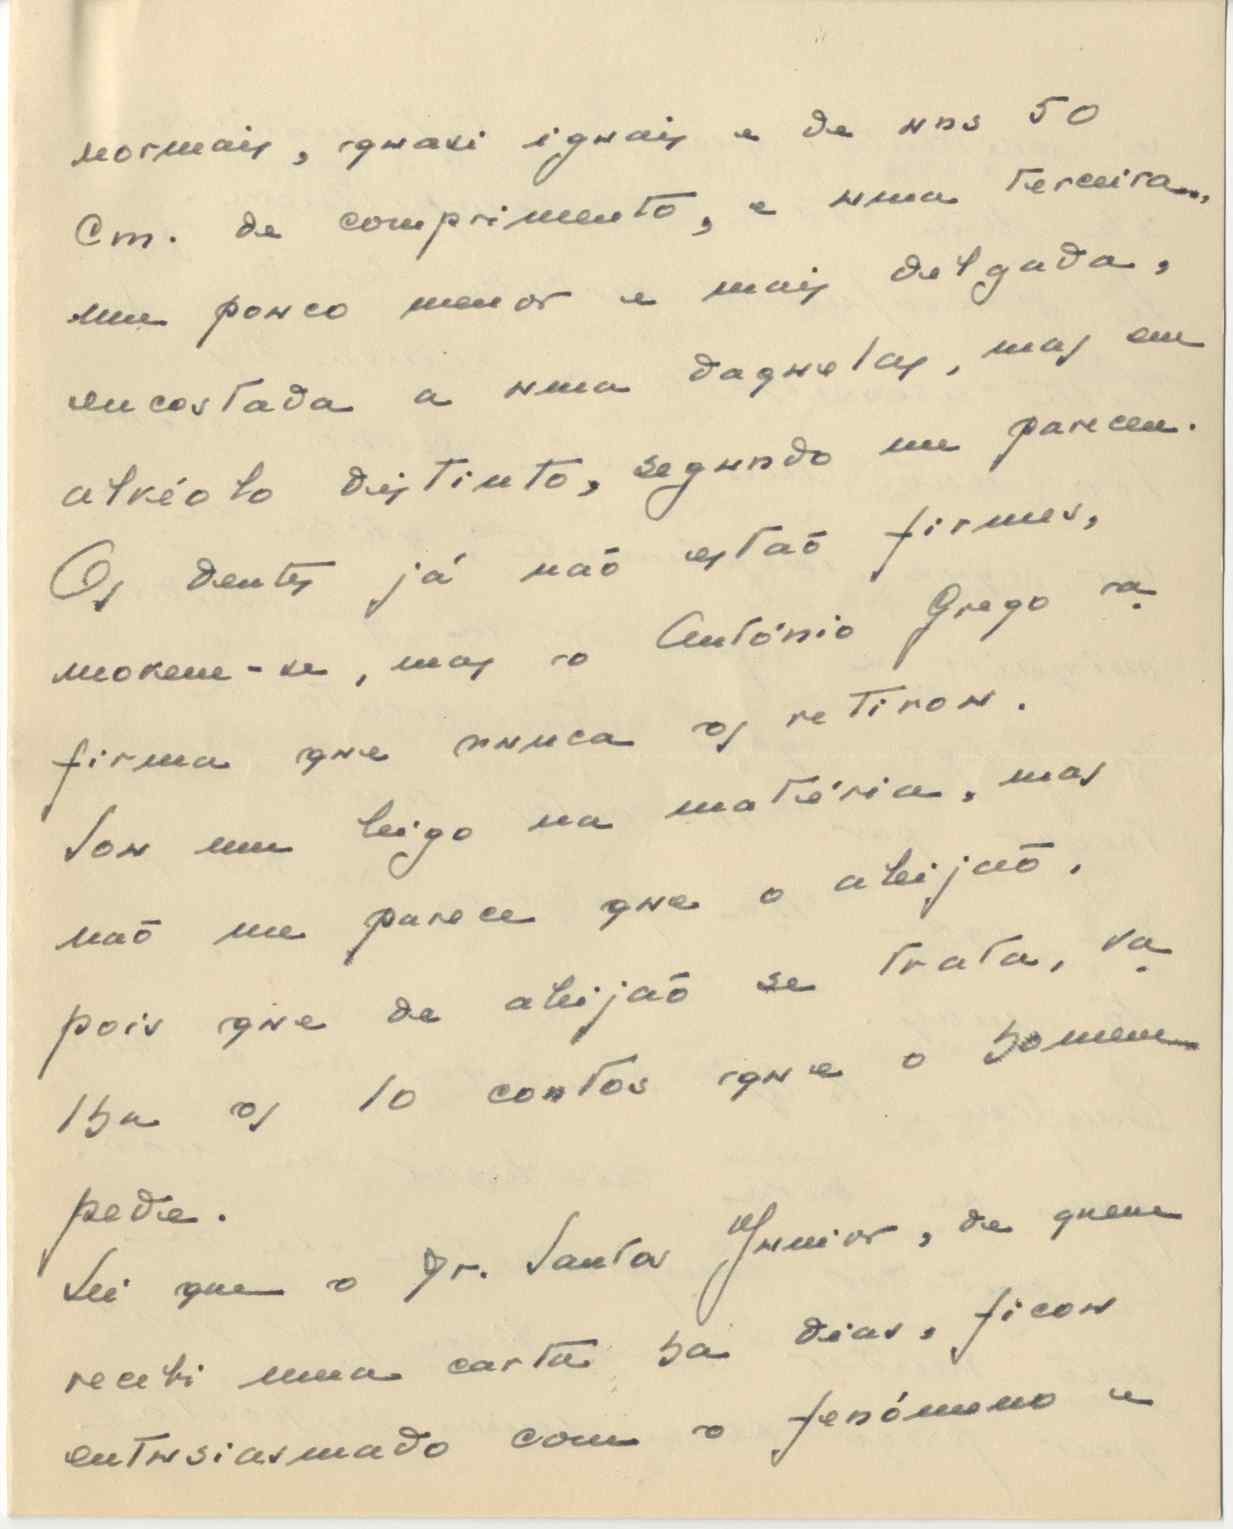 normais, quasi iguais e de uns 50
Cm. de comprimento, e uma terceira,
um pouco menor e mais delgada,
encostada a uma daquelas, mas em
alvéolo distinto, segundo me pareceu.
Os dentes já não estão firmes,
movem-se, mas o António Grego a
firma que nunca os retirou.
Sou um leigo na matéria, mas
não me parece que o aleijão,
pois que de aleijão se trata, va
lha os 10 contos que o homem
pede.
Sei que o Dr. Santos Junior, de quem
recebi uma carta há dias, ficou
entusiasmado com o fenómeno e